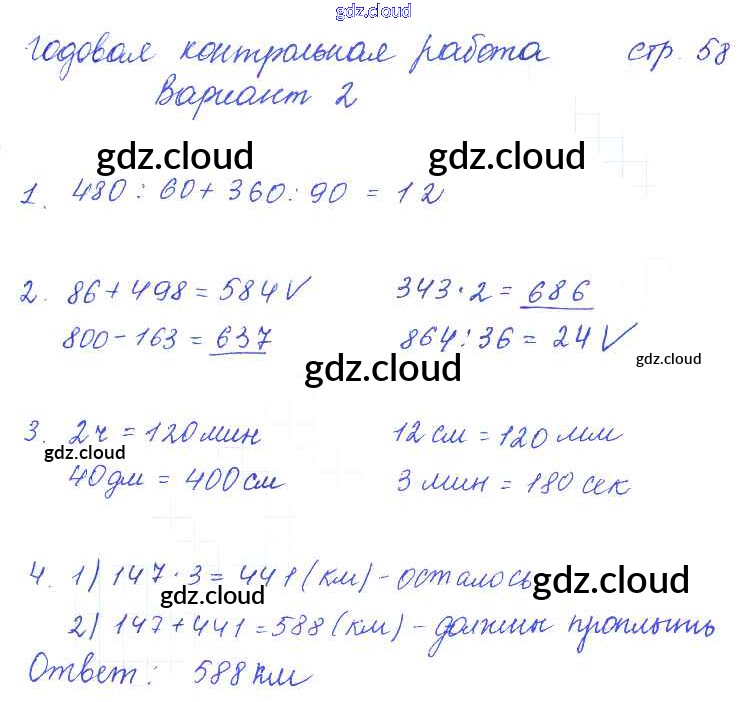 gdz.cloud
Годовая контрольная работа стр. 58
Вариант 2
gdz.cloud gdz.cloud
1. 480 : 60 + 360 : 90 = 12
2. 86 + 498 = 584 V 343 · 2 = 686
800 - 163 = 637 864 : 36 = 24 V
gdz.cloud
gdz.cloud
3. 2 ч = 120 мин 12 см = 120 мм
gdz.cloud
40 дм = 400 см 3 мин = 180 сек
4. 1) 147 · 3 = 441 (км) - осталось
gdz.cloud gdz.cloud
2) 147 + 441 = 588 (км) - должны проплыть
Ответ: 588 км